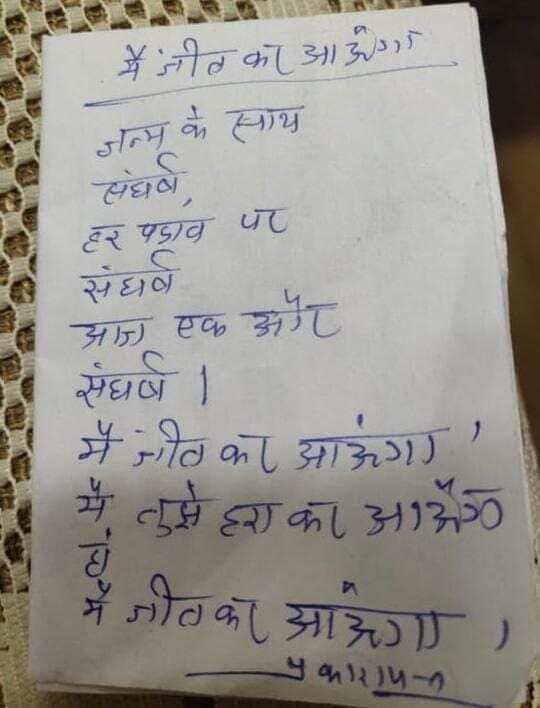 मैं जीत कर आऊँगा
जन्म के साथ
संघर्ष,
हर पडाव पर
संघर्ष
आज एक और
संघर्ष ।
मैं जीत कर आऊंगा,
मैं तुझे हरा कर आऊँगा
हां
मैं जीत कर आऊंगा,